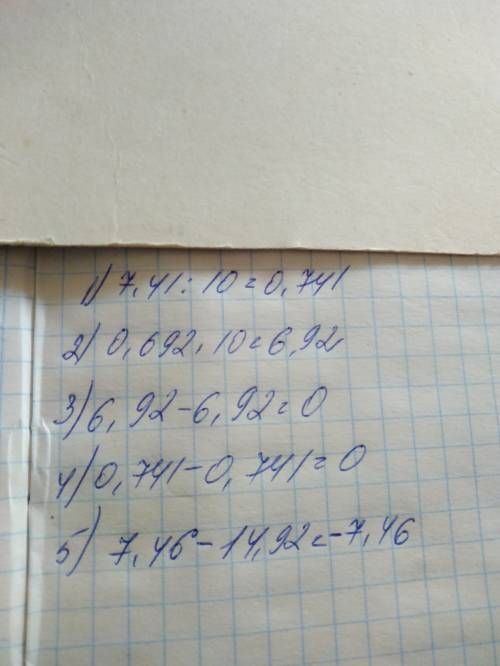 1) 7,41 : 10 = 0,741
2) 0,692 · 10 = 6,92
3) 6,92 - 6,92 = 0
4) 0,741 - 0,741 = 0
5) 7,46 - 14,92 = -7,46